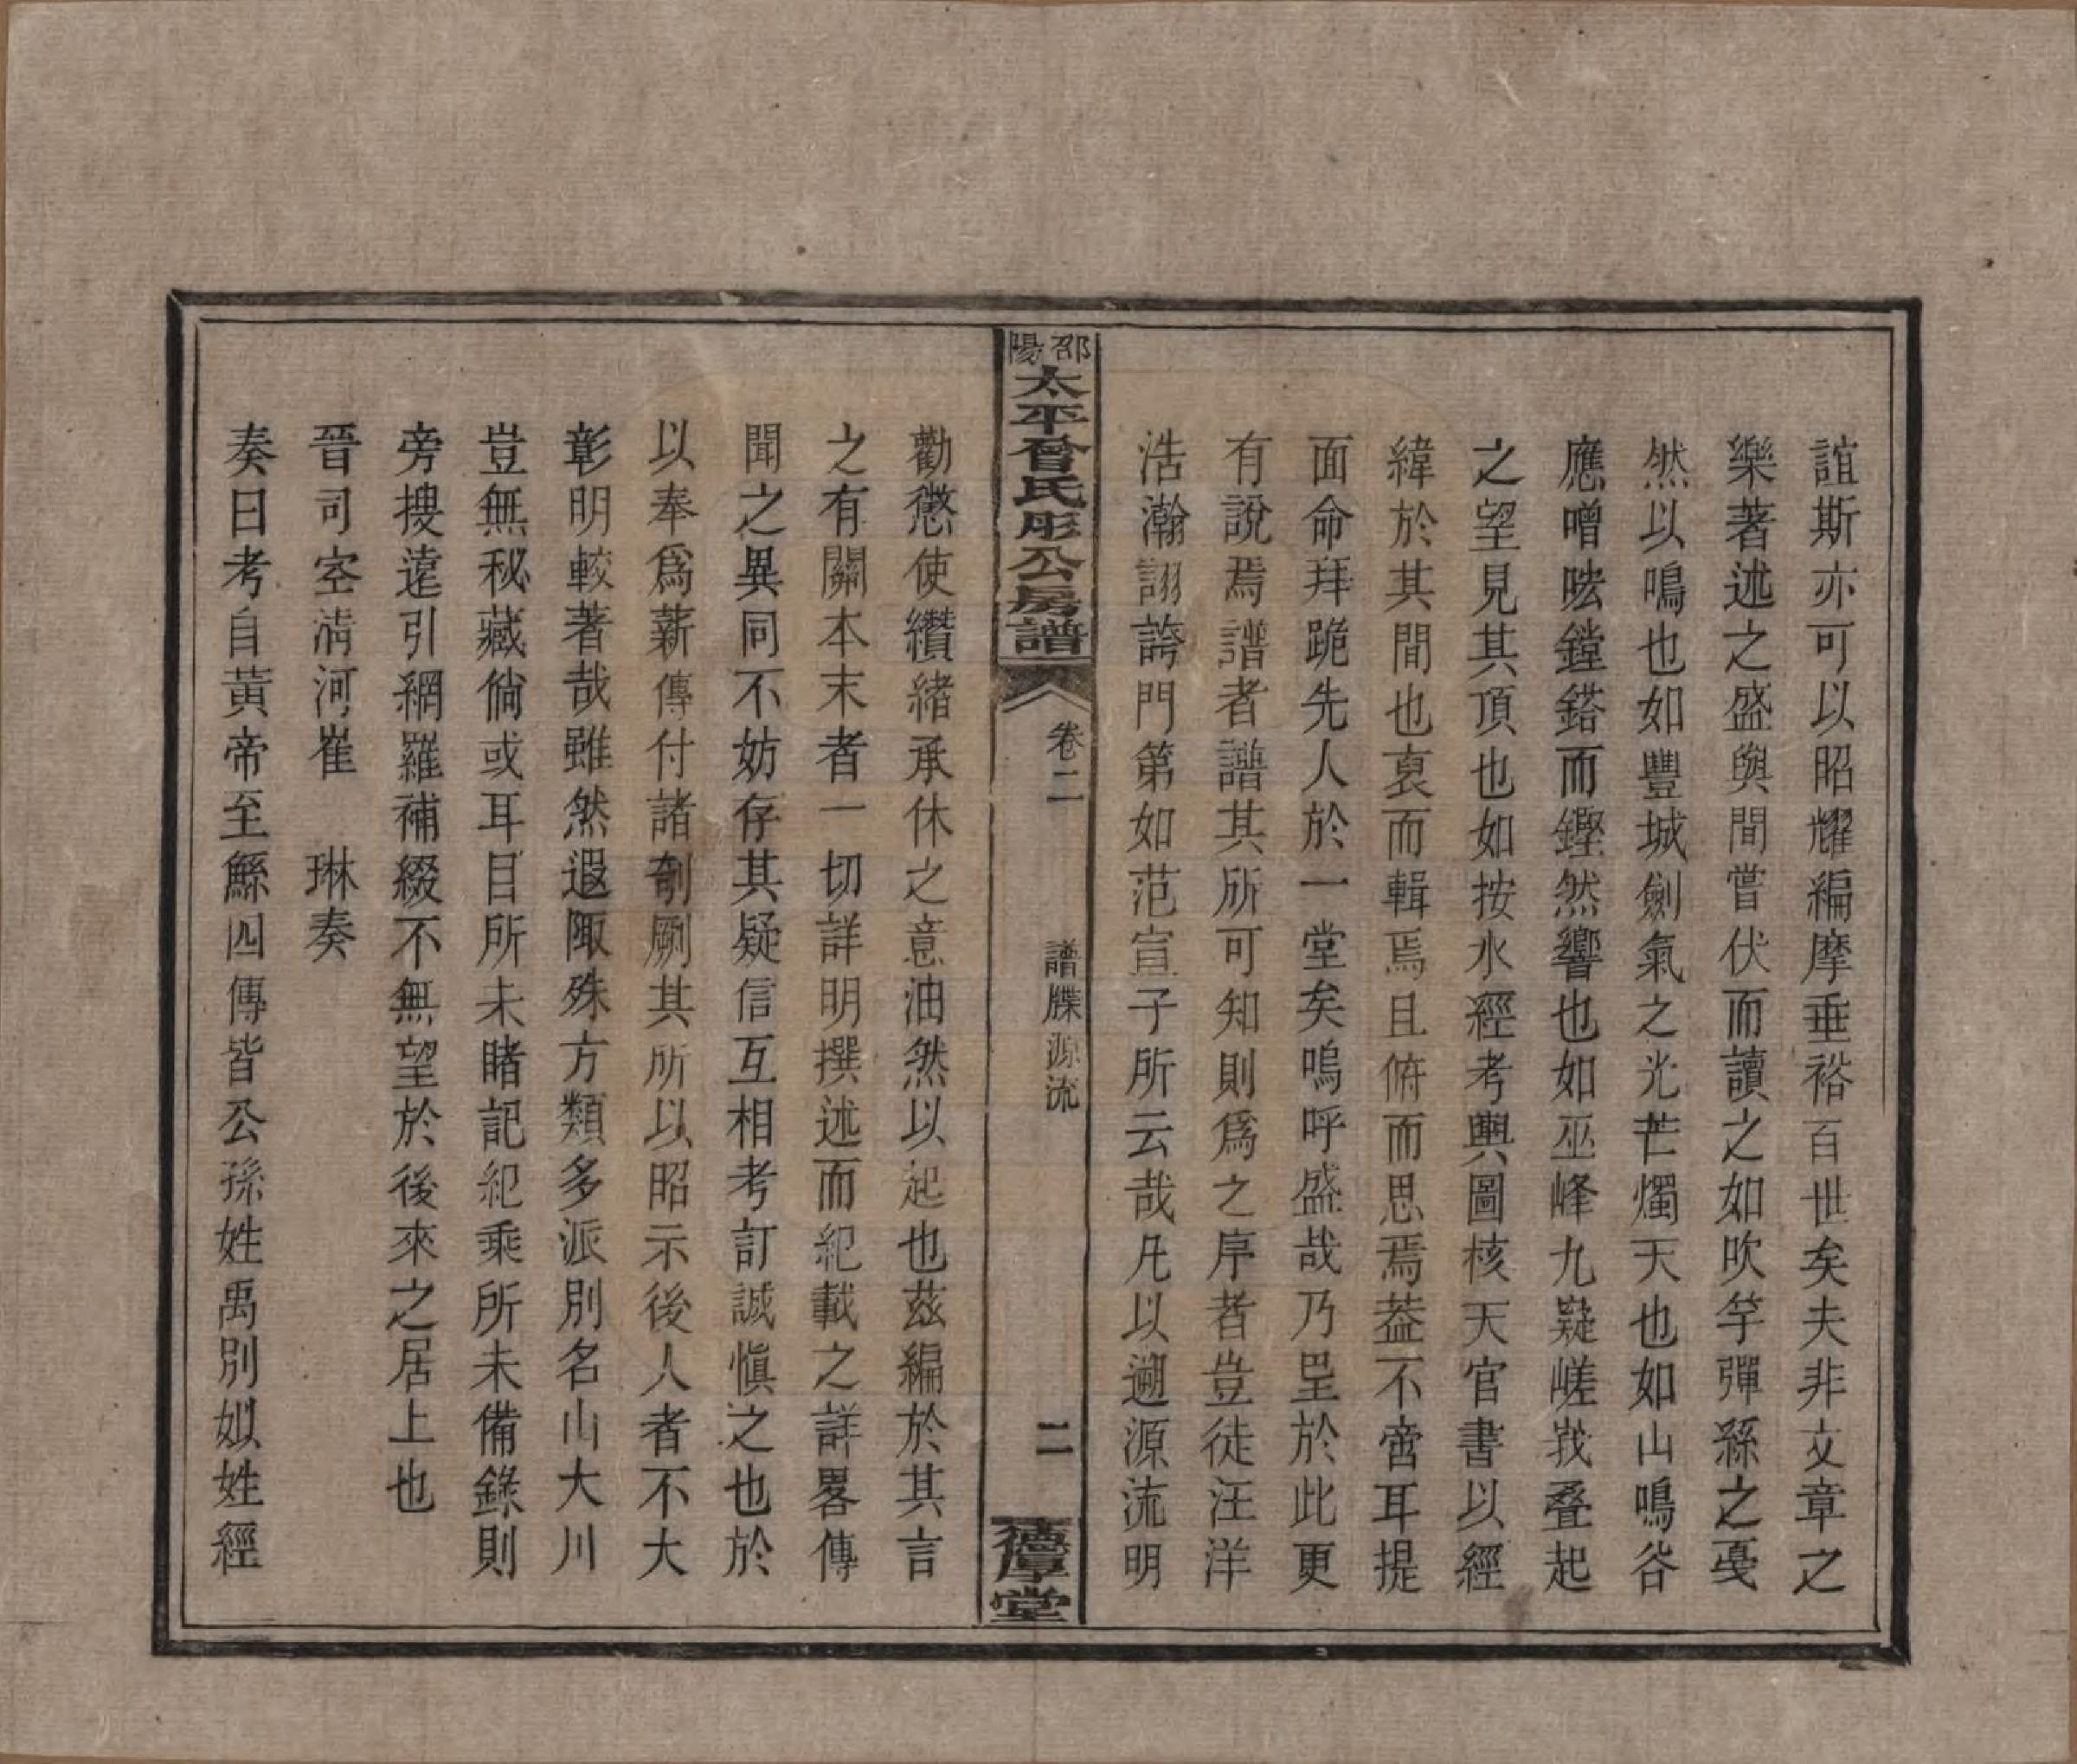 誼斯亦可以昭耀編摩垂裕百世矣夫非文章之
樂著述之盛與間嘗伏而讀之如吹竽彈絲之戛
然以鳴也如豐城劍氣之光芒燭天也如山鳴谷
應噌吰鏜鎝而鏗然響也如巫峰九嶷嵯峩叠起
之望見其頂也如按水經考輿圖核天官書以經
緯於其間也裒而輯焉且俯而思焉葢不啻耳提
面命拜跪先人於一堂矣嗚呼盛哉乃呈於此更
有說焉譜者譜其所可知則爲之序者豈徒汪洋
浩瀚詡誇門第如范宣子所云哉凡以遡源流明
邵陽太平曾氏彤公房譜
卷二
譜牒源流
二
德厚堂
勸懲使纘緒承休之意油然以起也茲編於其言
之有關本末者一切詳明撰述而紀載之詳畧傳
聞之異同不妨存其疑信互相考訂誠愼之也於
以奉爲薪傳付諸剞劂其所以昭示後人者不大
彰明較著哉雖然遐陬殊方類多派別名山大川
豈無秘藏倘或耳目所未睹記紀乘所未備錄則
旁搜遠引網羅補綴不無望於後來之居上也
晉司空淸河崔　琳奏
奏曰考自黃帝至鯀四傳皆公孫姓禹別姒姓經